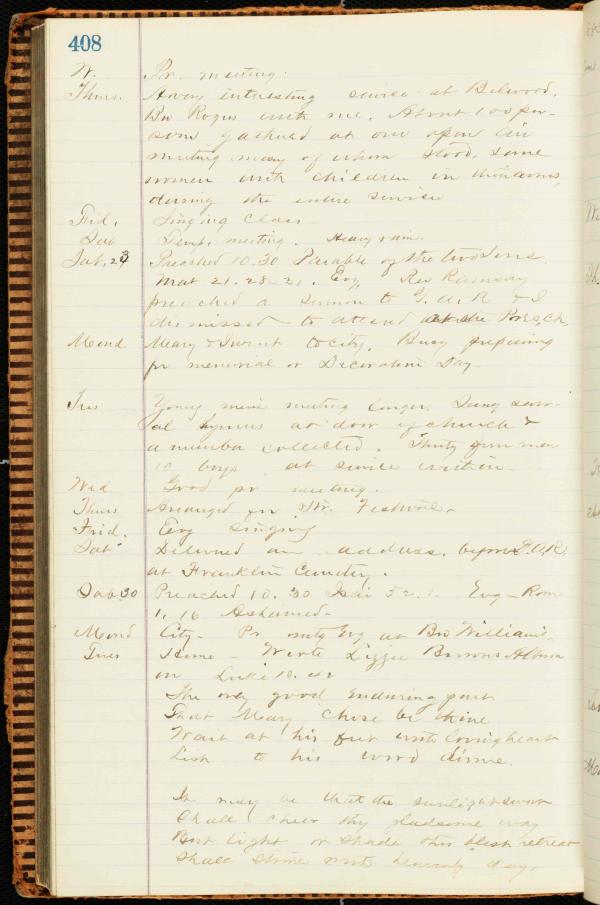 408
W. Pr. meeting.
Thurs. A very interesting service at Belwood.
Bro Rogers with me. About 100 per-
sons gathered at our open air
meeting many of whom stood, some
women with children in their arms,
during the entire service
Frid. Singing Class
Sab Temp. meeting. Heavy rain.
Sab. 23 Preached 10.30 Parable of the two Sons
Mat 21. 28-31. Evg. Rev Ramsay
preached a sermon to G. A. R & I
dismissed to attend at the Pres. Ch.
Mond Mary & I went to city. Busy preparing
for memorial or Decoration Day.
Tues Young men's meeting larger. Sung sever-
al hymns at door of church &
a number collected. Thirty four men
10 boys at service within.
Wed Good pr meeting.
Thurs Arranged for Str.
Frid. Evg Singing
Sat Delivered an address before G.A.R.
at Franklin Cemetery.
Sab 30 Preached 10.30 Isai 52.1. Evg - Rom
1. 16 Ashamed.
Mond City - Pr. mtg Evg at Bro Williams
Tues Home - Wrote Lizzie Burrows Album
on Luke 10. 42
The one good enduring part
That Mary chose be thine
Wait at his feet with loving heart
List to his word divine.
It may be that the sunlight sweet
Shall cheer thy gladsome way
But light or shade this blest retreat
Shall shine with heavenly day.